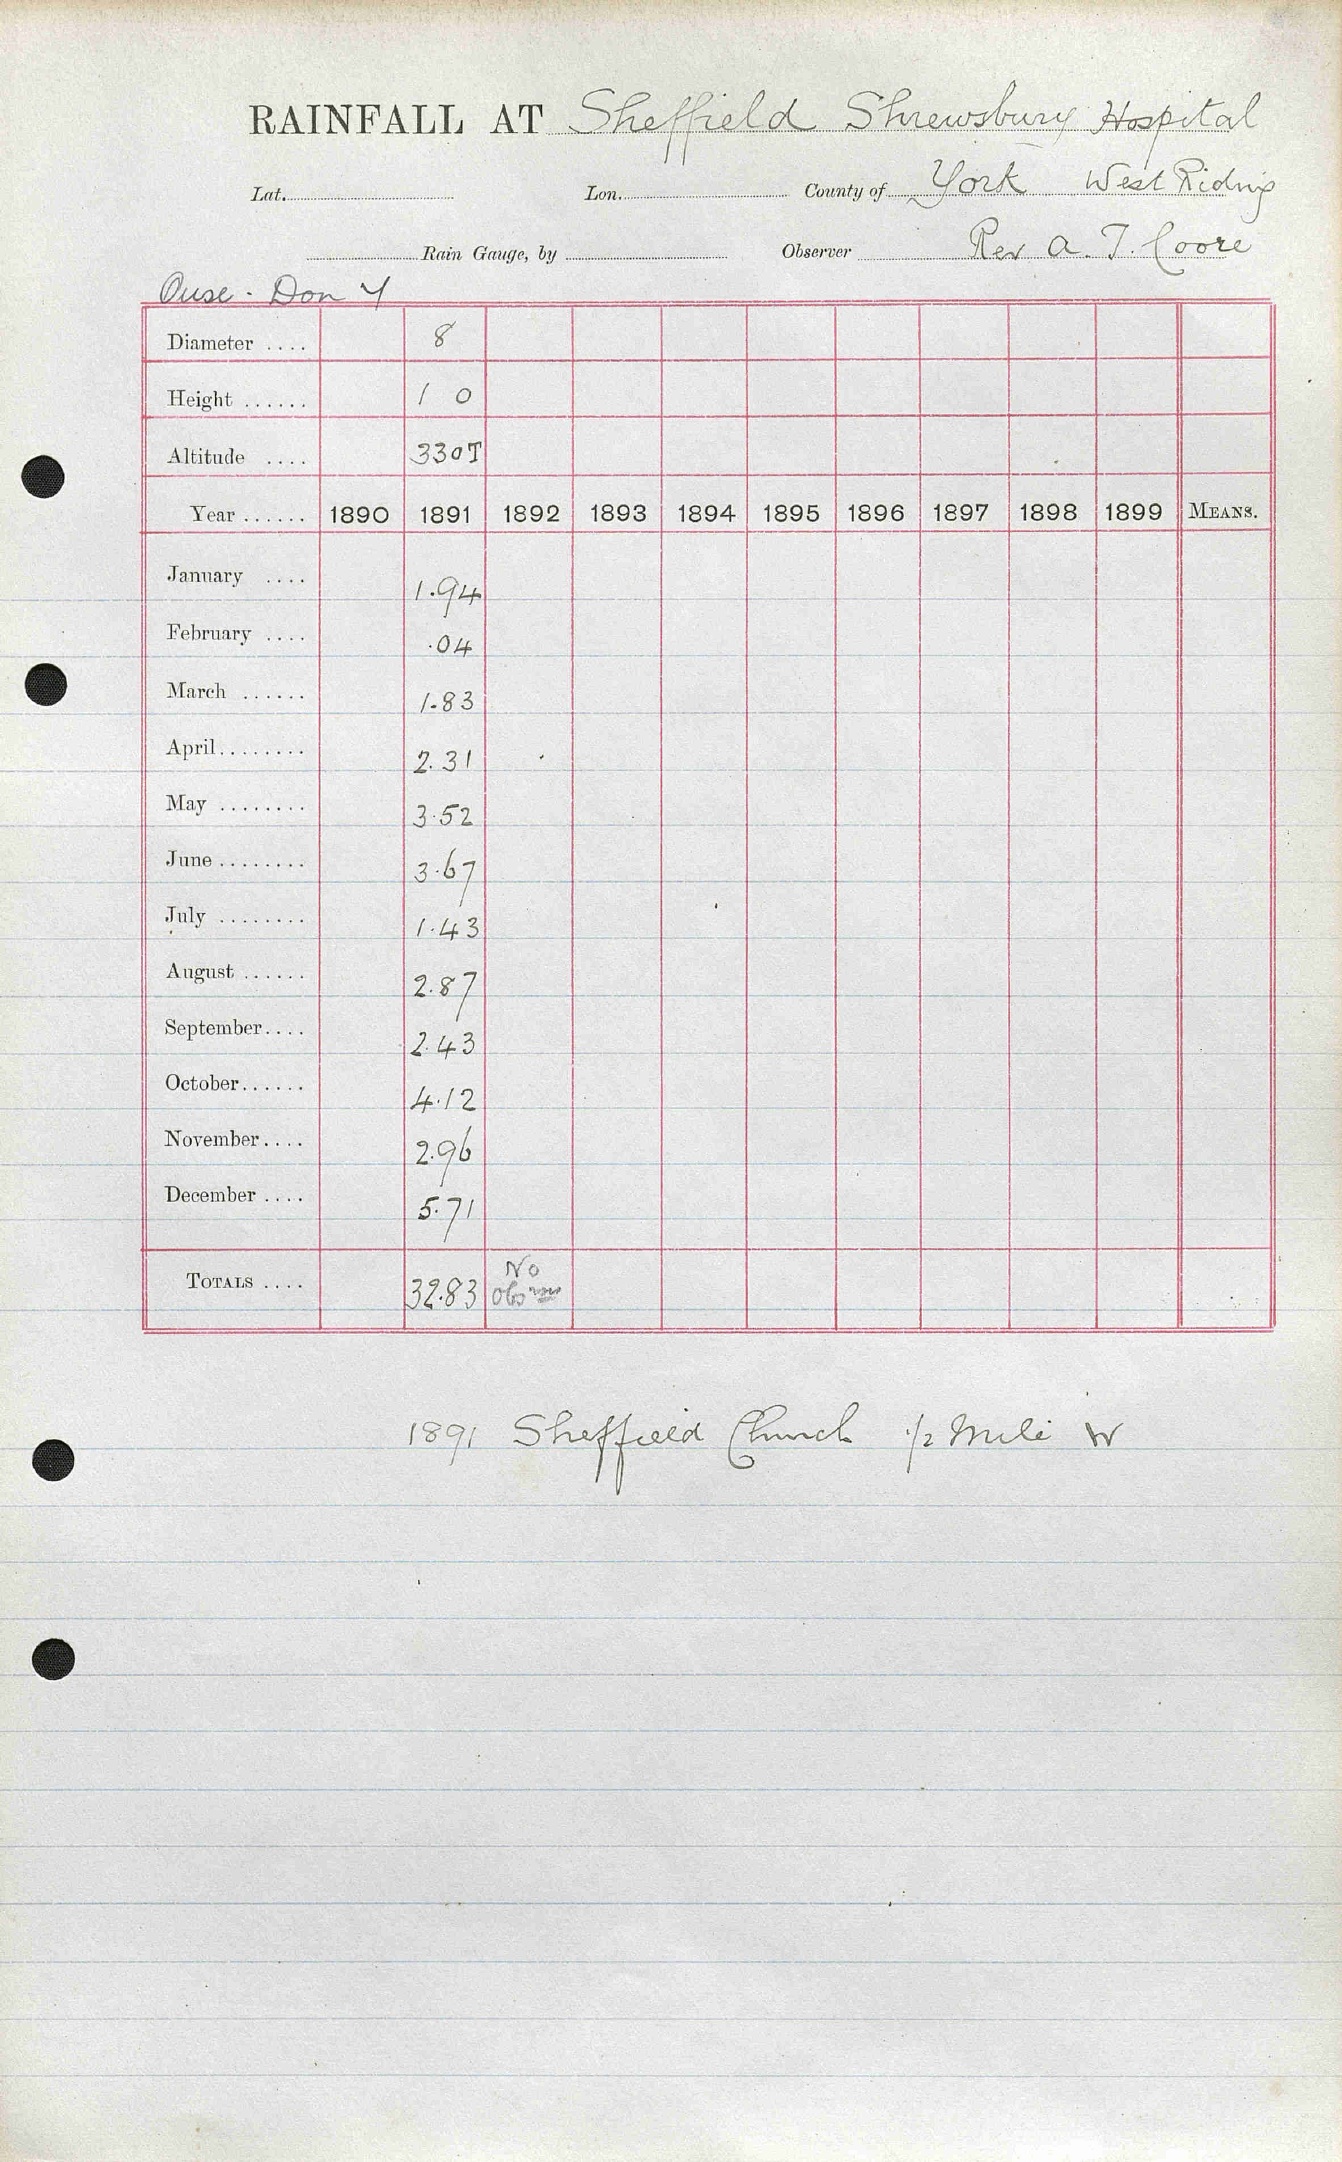 RAINFALL AT Sheffield Shrewsbury Hospital
Lat. Lon. County of York West Riding
Rain Gauge, by Observer Rev A. T. Coore
Ouse - Don Y
Diameter .... 8
Height ...... 1 0
Altitude .... 330T
Year ...... 1890 1891 1892 1893 1894 1895 1896 1897 1898 1899 MEANS.
January .... 1.94
February .... .04
March ...... 1.83
April........ 2.31
May ........ 3.52
June ........ 3.67
July ........ 1.43
August ...... 2.87
September.... 2.43
October...... 4.12
November.... 2.96
December .... 5.71
TOTALS .... 32.83 No
1891 Sheffield Church 1/2 Mile W